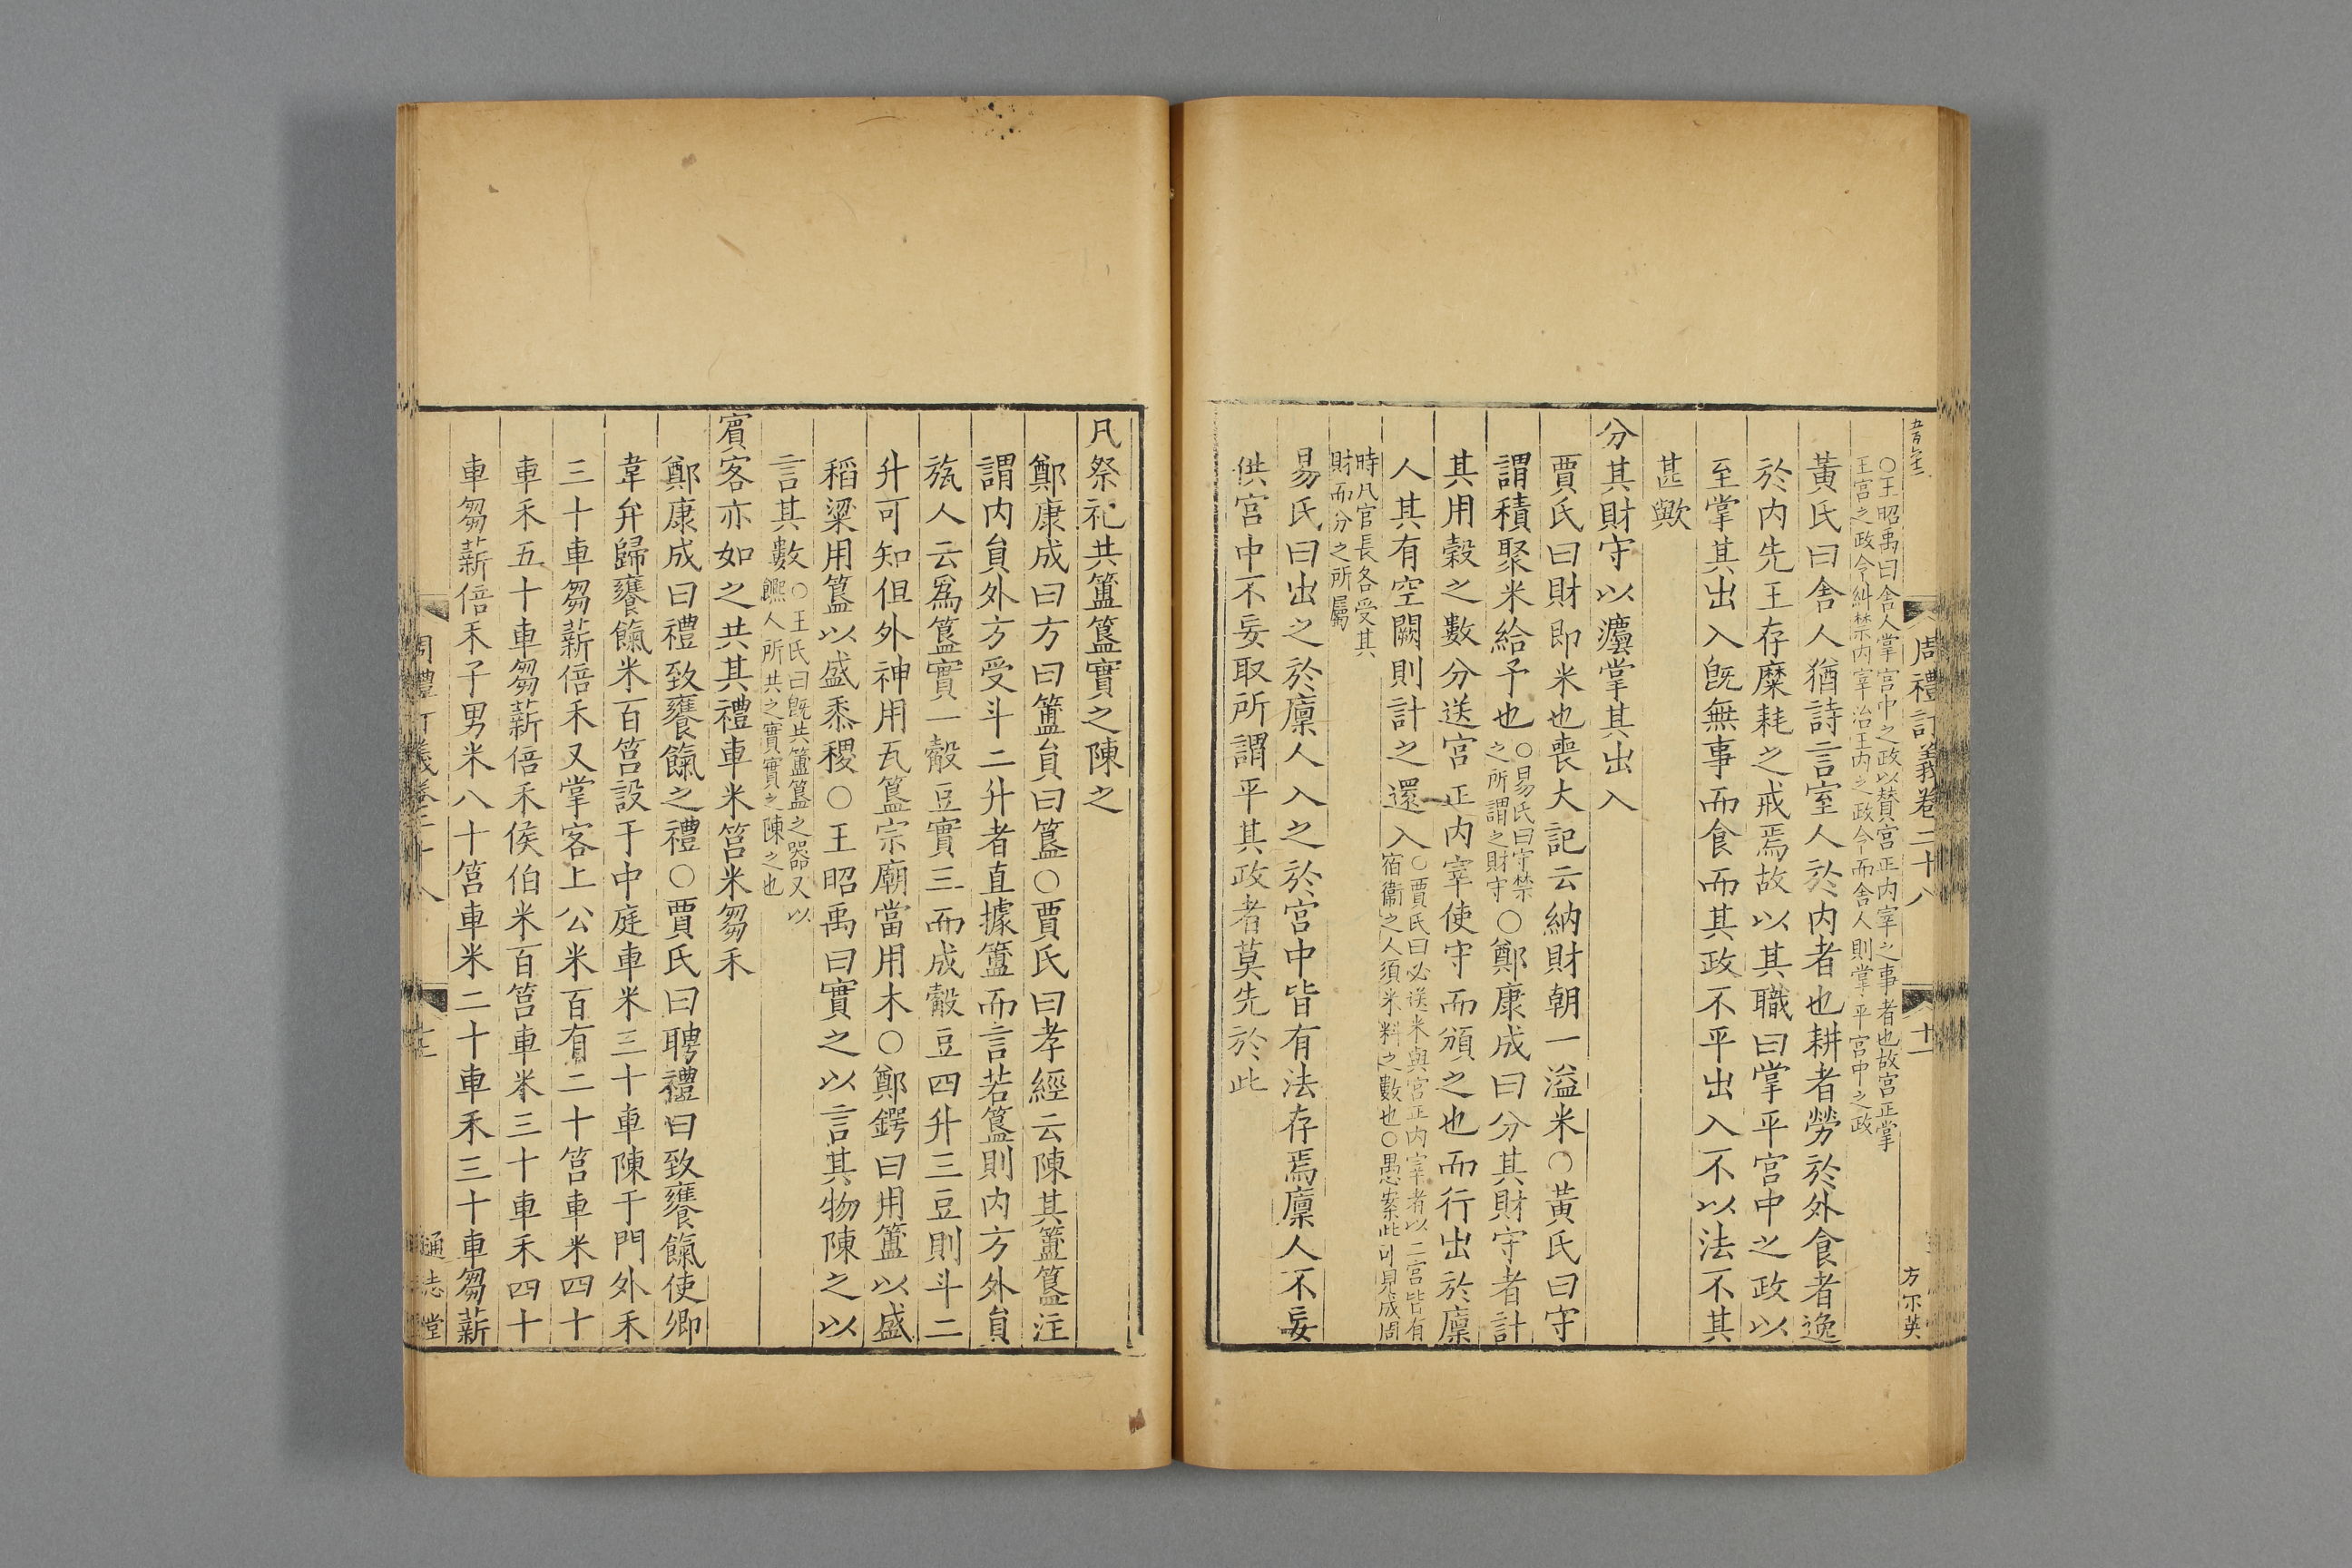 周禮訂義卷二十八
十一
方不英
○王昭禹曰舍人掌宮中之政以賛宮正內宰之事者也故宮正掌
王宮之政令糾禁內宰治王內之政令而舍人則掌平宮中之政
黃氏曰舍人猶詩言室人於內者也耕者勞於外食者逸
於內先王存糜耗之戒焉故以其職曰掌平宮中之政以
至掌其出入旣無事而食而其政不平出入不以法不其
甚歟
分其財守以灋掌其出入
賈氏曰財即米也喪大記云納財朝一溢米○黃氏曰守
謂積聚米給予也○易氏曰守禁
之所謂之財守○鄭康成曰分其財守者計
其用穀之數分送宮正內宰使守而頒之也而行出於廩
人其有空闕則計之還入○賈氏曰必送米與宮正內宰者以二宮皆有
宿衞之人須米料之數也○愚案此可見成周
時凡官長各受其
財而分之所屬
易氏曰出之於廩人入之於宮中皆有法存焉廩人不妄
供宮中不妄取所謂平其政者莫先於此
凡祭祀共簠簋實之陳之
鄭康成曰方曰簠員曰簋○賈氏曰孝經云陳其簠簋注
謂內員外方受斗二升者直據簠而言若簋則內方外員
瓬人云爲簋實一觳豆實三而成觳豆四升三豆則斗二
升可知但外神用瓦簋宗廟當用木○鄭鍔曰用簠以盛
稻粱用簋以盛黍稷○王昭禹曰實之以言其物陳之以
言其數○王氏曰旣共簠簋之器又以
饎人所共之實實之陳之也
賓客亦如之共其禮車米筥米芻禾
鄭康成曰禮致饔餼之禮○賈氏曰聘禮曰致饔餼使卿
韋弁歸饔餼米百筥設于中庭車米三十車陳于門外禾
三十車芻薪倍禾又掌客上公米百有二十筥車米四十
車禾五十車芻薪倍禾侯伯米百筥車米三十車禾四十
車芻薪倍禾子男米八十筥車米二十車禾三十車芻薪
周禮訂義卷二十八
通志堂